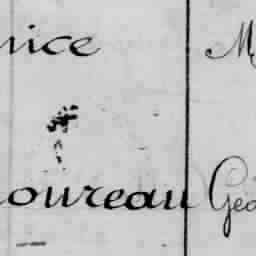 nice M
oureau Geo